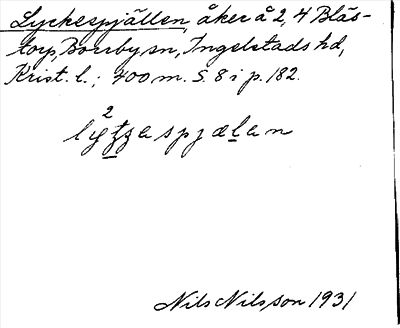 Lyckespjällen, åker å 2, 4 Blås-
torp, Borrby sn, Ingelstads hd,
Krist. l.; 700 m. S. 8 i p. 182.
2
Nils Nilsson 1931